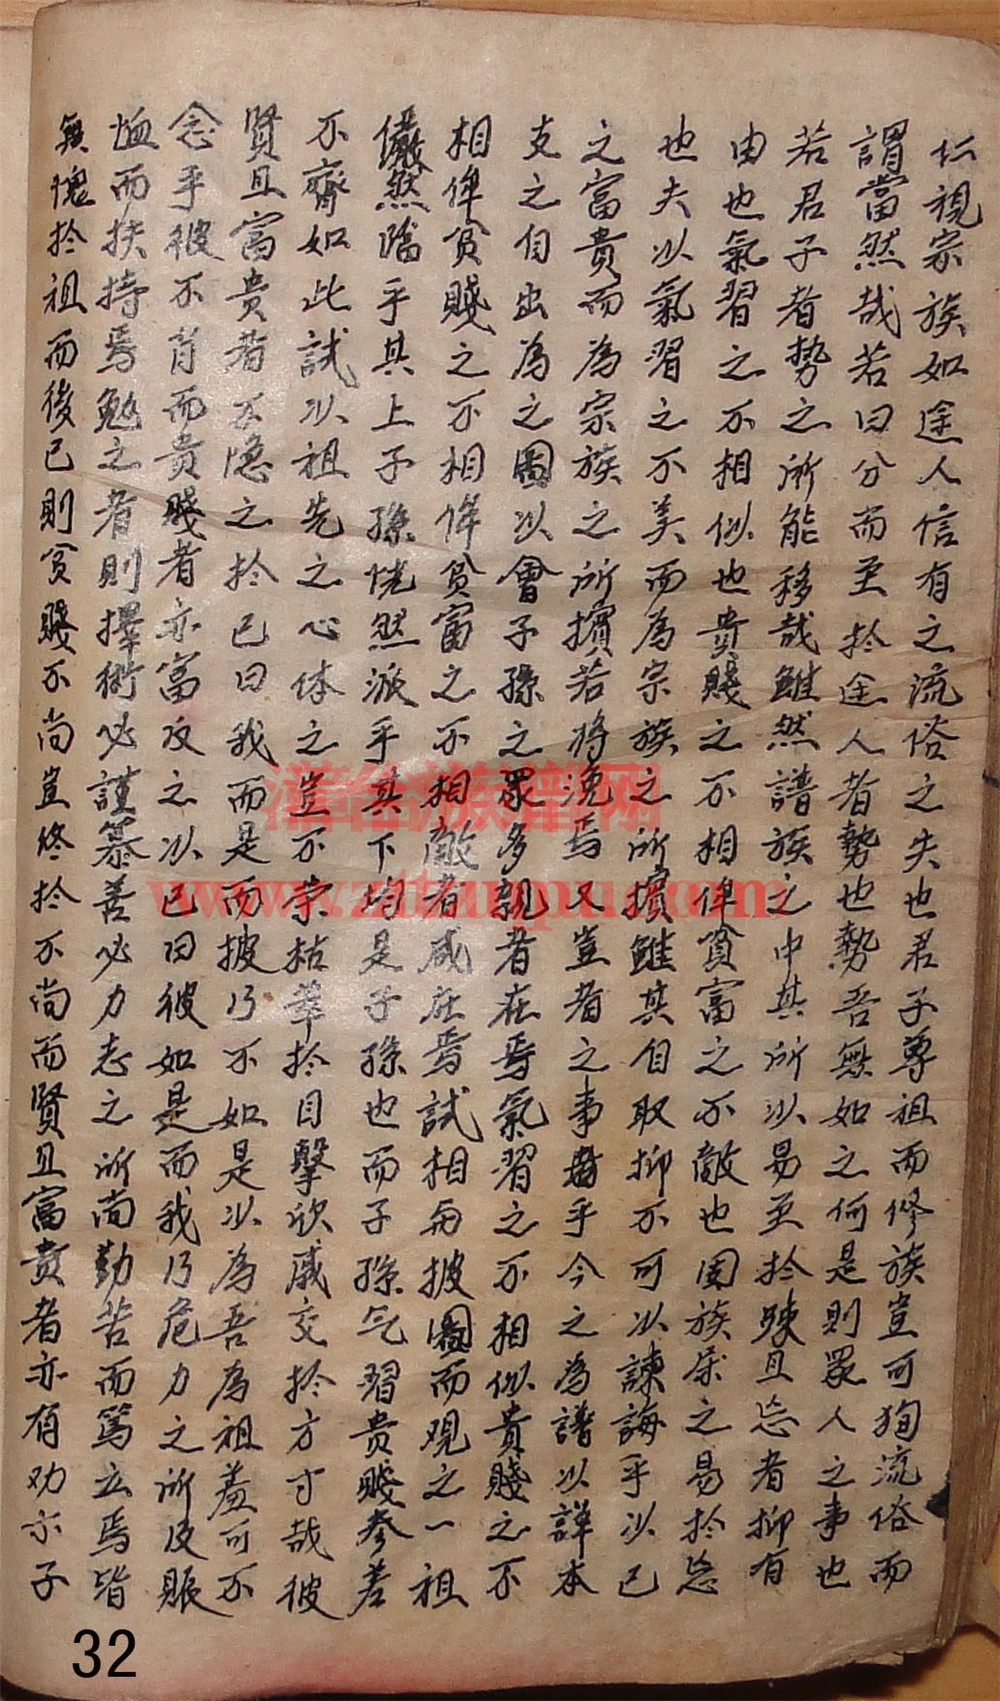 仁視宗族如途人信有之流俗之失也君子尊祖而修族豈可狥流俗而
謂當然哉若曰分而至於途人者勢也勢吾無如之何是則眾人之事也
若君子者势之所能移哉雖然譜族之中其所以易至於踈且忘者抑有
由也氣習之不相似也貴賤之不相侔貧富之不敵也闔族屎之易於忘
也夫以氣習之不美而為宗族之所擯雖其自取抑不可以諫誨乎以己
之富貴而為宗族之所擯若将浼焉又豈者之事者乎今之為譜以詳本
支之自出為之圖以會子孫之眾多親者在焉氣習之不相似貴賤之不
相侔貧賤之不相侔贫富之不相敵者咸在焉試相與披圖而观之一祖
儼然臨乎其上子孫恍然派乎其下均是子孫也而子孫气習贵賤参差
不齊如此試以祖先之心体之豈不荣枯萃於目擊欣戚交於方寸哉彼
賢且富貴者不隐之於已曰我而是而披乃不如是以為吾為祖羞可不
念乎彼不肖而贵賤者亦富反之以已曰彼如是而我乃危力之所及賑
恤而扶持焉勉之者則擇術必謹慕善必力志之所尚勤苦而篤立焉皆
無愧於祖而後已則贫賤不尚豈终於不尚而賢且富貴者亦有劝亦子
www.ztzupu.com
32